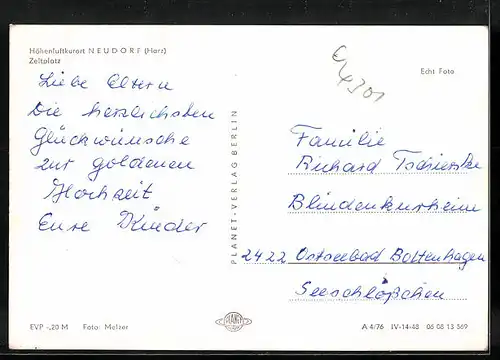 Höhenluftkurort NEUDORF (Harz)
Zeltplatz
Liebe Eltern
Die herzlichsten
Glückwünsche
zur goldenen
Hochzeit
Eure Kinder
PLANET-VERLAG BERLIN
Echt Foto
Familie
Richard
Blindenkurheim
2422 Ostseebad Boltenhagen
Seeschlößchen
EVP -,20 M Foto: Melzer
PLANET
A 4/76 IV-14-48 06 08 13 369